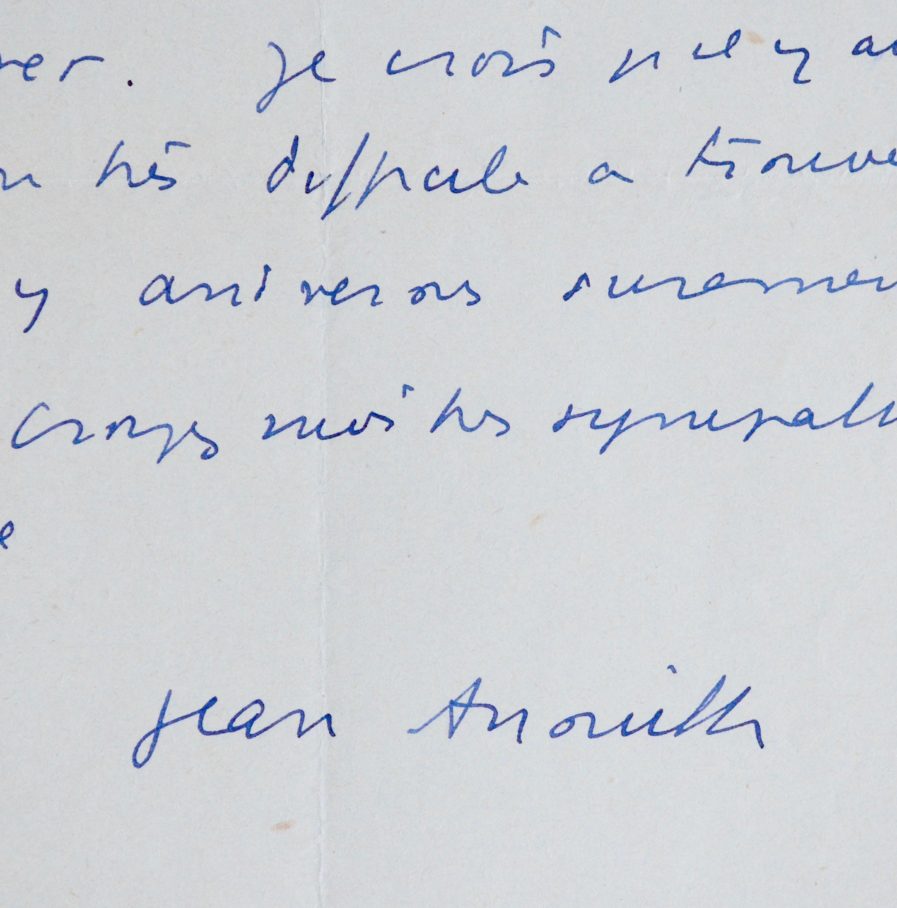 ver. Je crois qu'il y a
très difficile a trouve
y arriverons suremen
Croyez mes très sympath
e
Jean Anouilh